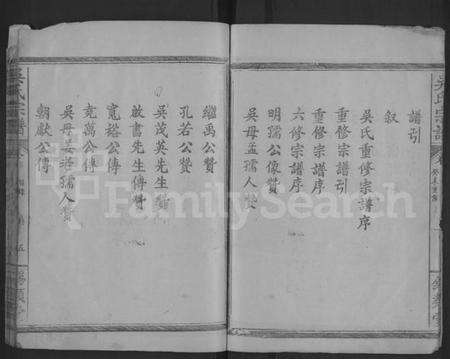 吳氏宗譜
譜引
敘
吳氏重修宗譜序
重修宗譜引
重修宗譜序
六修宗譜序
明孺公像贊
吳母孟孺人贊
繼禹公贊
孔若公贊
吳茂英先生贊
啟書先生傳贊
寬裕公傳
克萬公傳
吳母姜老孺人贊
朝獻公傳
吳氏宗譜
FamilySearch